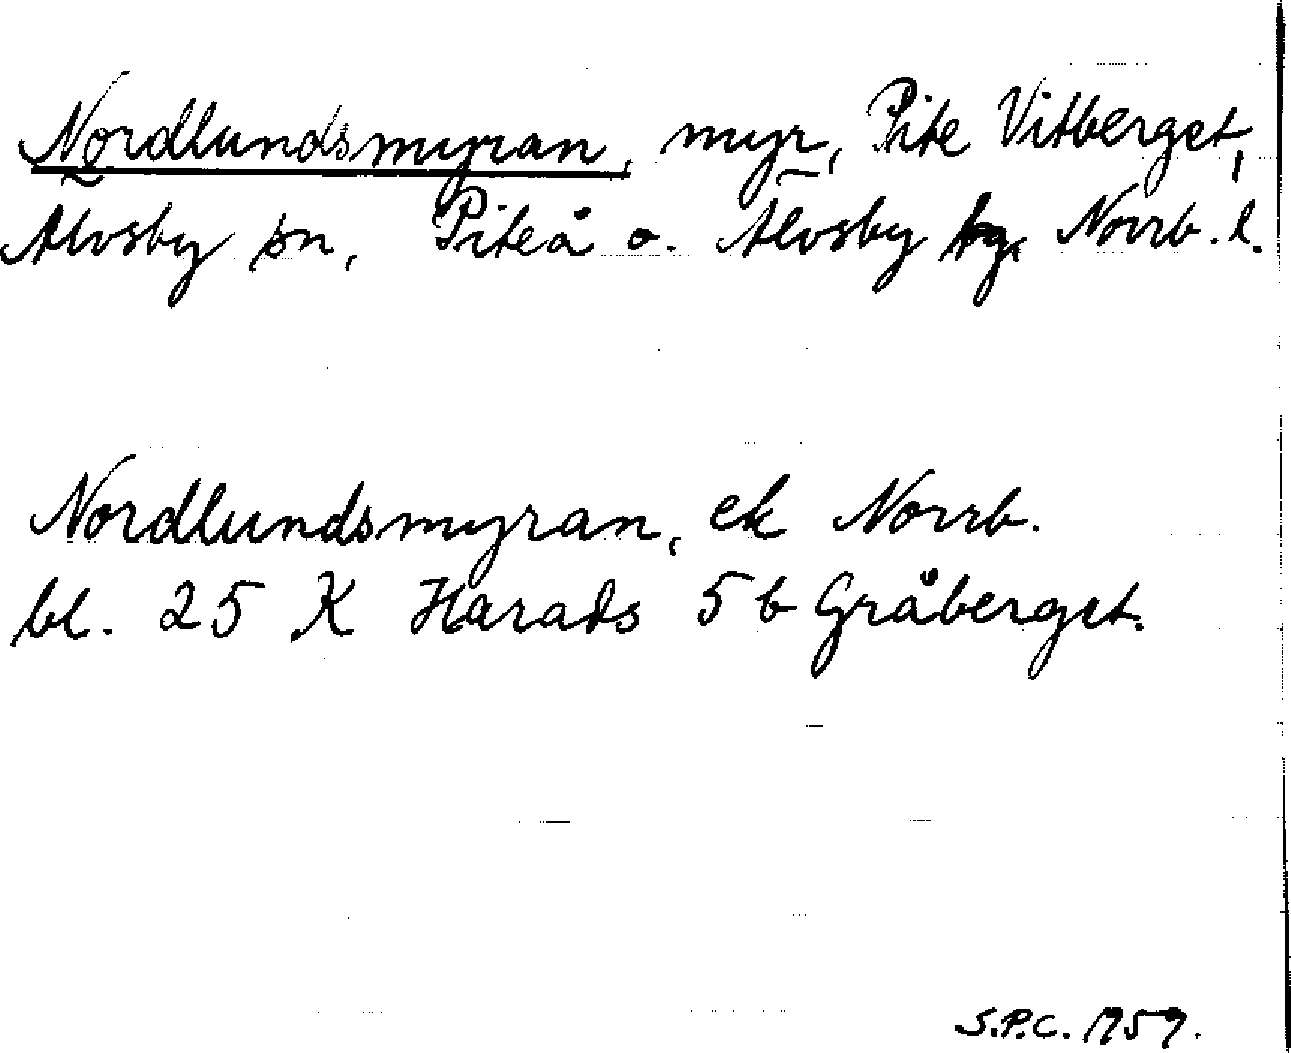 Nordlundsmyran, myr, Pite Vitberget,
Älvsby sn, Piteå o. Älvsby tg, Norrb. l.
Nordlundsmyran, ek Norrb.
bl. 25 K Harads 5 b Gråberget.
S.P.C. 1959.